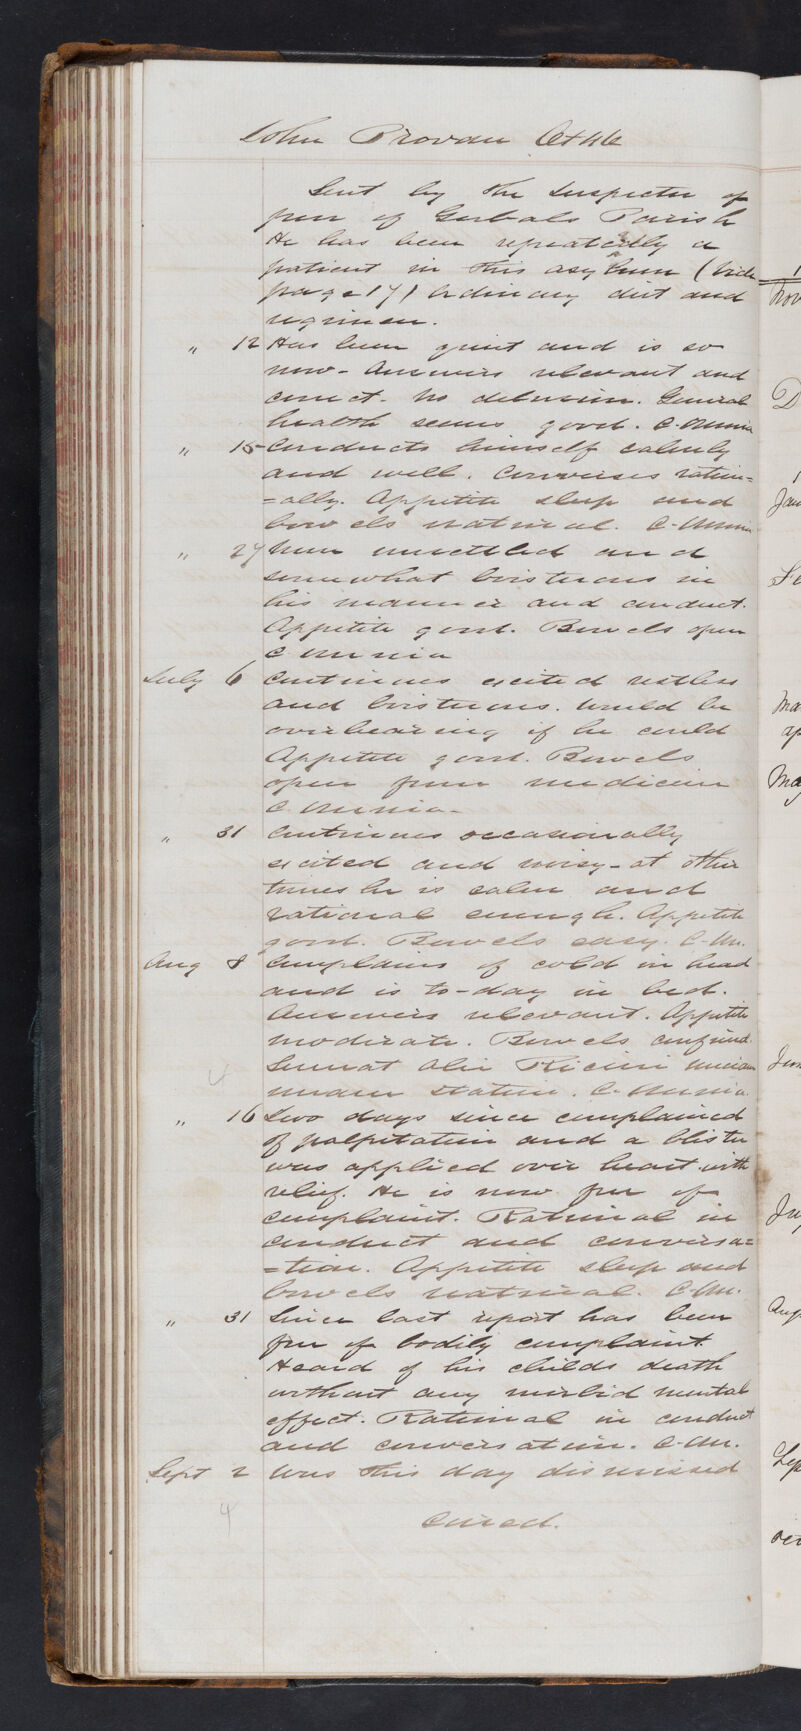 John Provan Æt 46
Sent by the Inspector of
poor of Gorbals Parish
He has been repeatedly a
patient in this asylum (Vide
page 17) Ordinary diet and
regimen.
" 12 Has been quiet and is so
now - Answers relevant and
correct. No delusion. General
health seems good. C. Omnia
" 15 Conducts himself calmly
and well. Converses ration=
=ally. Appetite sleep and
bowels natural. C. Omnia
" 27 More unsettled and
somewhat boisterous in
his manner and conduct.
Appetite good. Bowels open
C Omnia
July 6 Continues excited restless
and boisterous. Would be
overbearing if he could
Appetite good. Bowels
open from medicine
C Omnia.
" 31 Continues occasionally
excited and noisy - at other
times he is calm and
rational enough. Appetite
good. Bowels easy. C. Om.
Aug 8 Complains of cold in head
and is to-day in bed.
Answers relevant. Appetite
moderate. Bowels confined.
Sumat Olei Ricini unciam
unam statim. C. Omnia.
" 16 Two days since complained
of palpitation and a blister
was applied over heart with
relief. He is now free of
complaint. Rational in
conduct and conversa=
=tion. Appetite sleep and
bowels natural. C. Om.
" 31 Since last report has been
free of bodily complaint.
Heard of his childs death
without any morbid mental
effect. Rational in conduct
and conversation. C. Om.
Sept 2 Was this day dismissed
4
Cured.